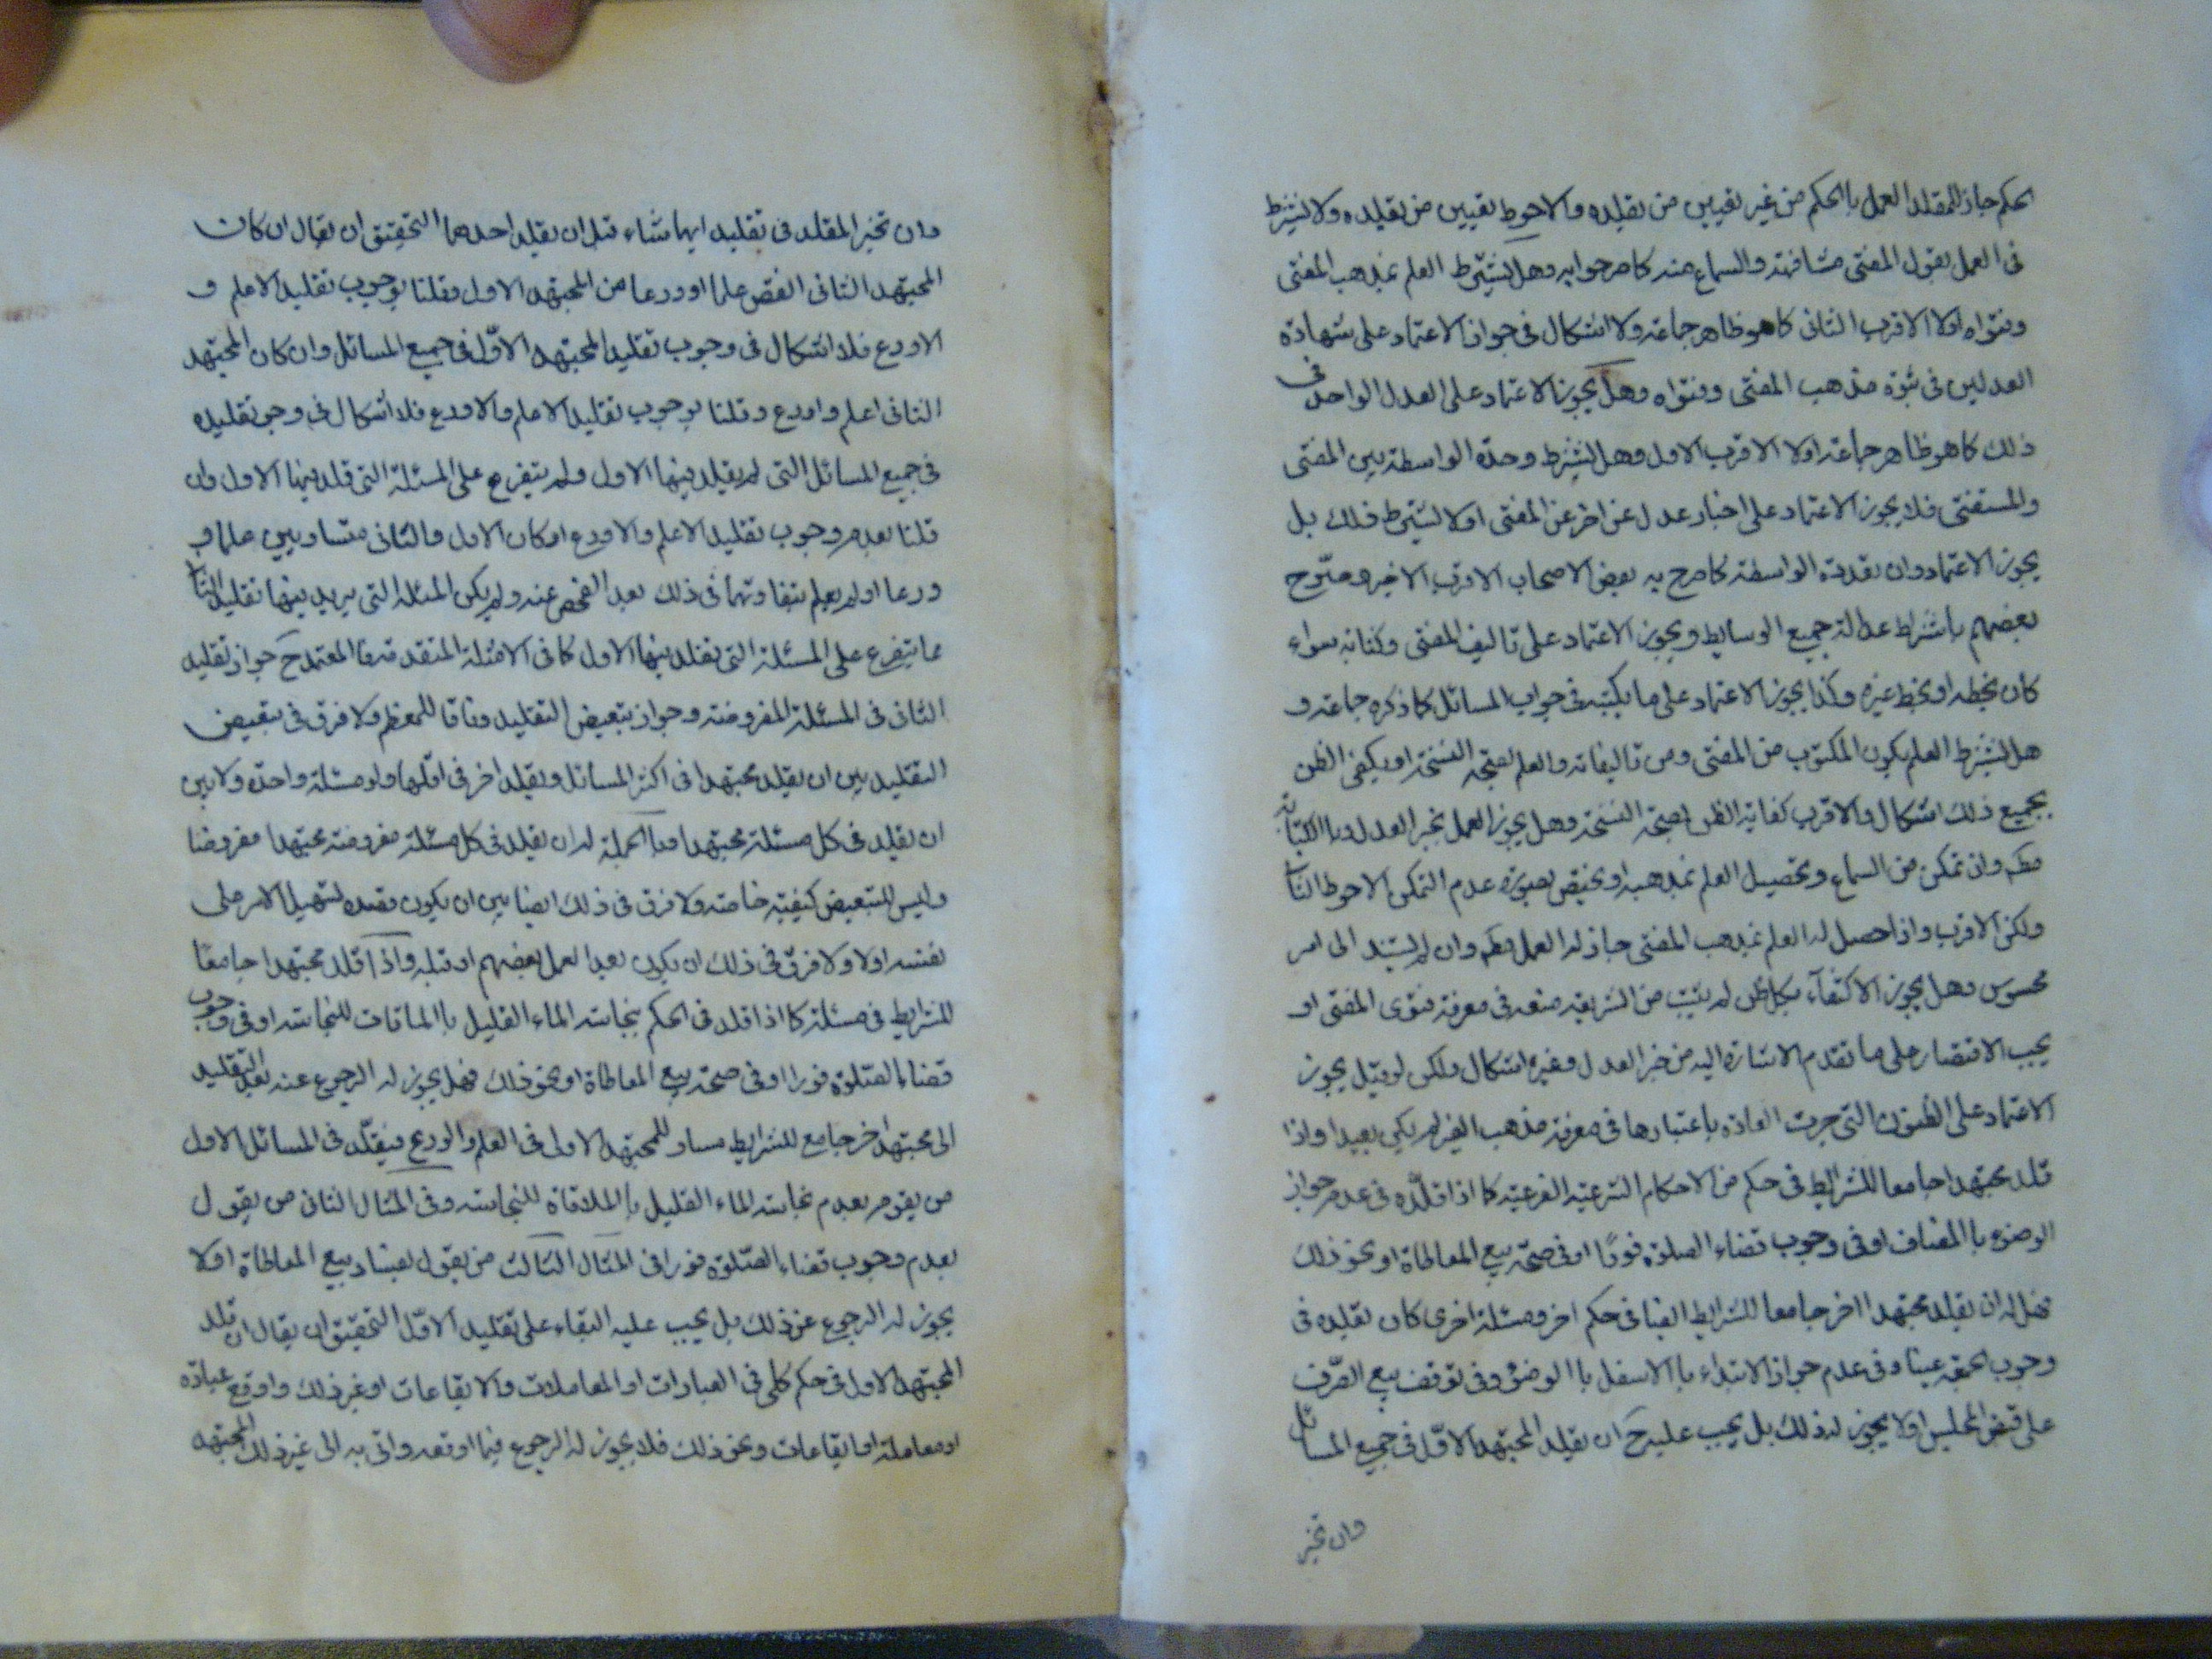 الحكم جاز للمقلد العمل باالحكم من غير تعيين من يقلده والاحوط تعيين من يقلده ولا يشترط
فى العمل بقول المفتى مشافهته والسماع منه كما صرحوا به وهل يشترط العلم بمذهب المفتى
وفتواه اولا الاقرب الثانى كما هو ظاهر جماعة ولا اشكال فى جواز الاعتماد على شهادة
العدلين فى ثبوة مذهب المفتى وفتواه وهل يجوز الاعتماد على العدل الواحد فى
ذلك كما هو ظاهر جماعة اولا الاقرب الاول وهل يشترط وحدة الواسطة بين المفتى
والمستفتى فلا يجوز الاعتماد على اخبار عدل عن اخر عن المفتى اولا يشترط ذلك بل
يجوز الاعتماد وان تعددة الواسطة كما صرح به بعض الاصحاب الاقرب الاخير وصرّح
بعضهم باشتراط عدالة جميع الوسايط ويجوز الاعتماد على تاليف المفتى وكتابه سواء
كان بخطه او بخط غيره وكذا يجوز الاعتماد على ما يكتبه فى جواب المسائل كما ذكره جماعة و
هل يشترط العلم بكون المكتوب من المفتى ومن تاليفاته والعلم بصحة النسخة او يكفى الظن
بجميع ذلك اشكال والاقرب كفاية الظن بصحة النسخة وهل يجوز العمل بخبر العدل وباالكتابة
مطم وان تمكن من السماع وتحصيل العلم بمذهبه او يختص بصورة عدم التمكن الاحوط الثانى
ولكن الاقرب واذا حصل له العلم بمذهب المفتى جاز له العمل مطم وان لم يستند الى امر
محسوس وهل يجوز الاكتفآء بكل ظن لم يثبت من الشريعة منعه فى معرفة فتوى المفتى او
يجب الاقتصار على ما تقدم الاشارة اليه من خبر العدل وغيره اشكال ولكن لو قيل يجوز
الاعتماد على الظنون التى جرت العادة باعتبارها فى معرفة مذهب الغير لم يكن بعيدا واذا
قلد مجتهدا جامعا للشرايط فى حكم من الاحكام الشرعية الفرعية كما اذا قلّده فى عدم جواز
الوضوء باالمضاف او فى وجوب قضاء الصلوة فورًا او فى صحّة بيع المعاطاة او نحو ذلك
فهل له ان يقلد مجتهدا اخر جامعا للشرايط ايضا فى حكم اخر ومسئلة اخرى كان يقلده فى
وجوب الجمعة عينا وفى عدم جواز الابتداء باالاسفل باالوضوء وفى توقف بيع الصّرف
على قبض المجلس اولا يجوز له ذلك بل يجب عليه ح ان يقلد المجتهد الاوّل فى جميع المسائل
وان تخير
وان تخير المقلد فى تقليد ايهما شاء قبل ان يقلد احدهما التحقيق ان يقال ان كان
المجتهد الثانى انقص علما او ورعا من المجتهد الاول وقلنا بوجوب تقليد الاعلم و
الاورع فلا اشكال فى وجوب تقليد المجتهد الاوّل فى جميع المسائل وان كان المجتهد
الثانى اعلم واورع وقلنا بوجوب تقليد الاعلم والاورع فلا اشكال فى وجوب تقليده
فى جميع المسائل التى لم يقلد فيها الاول ولم يتفرع على المسئلة التى قلد فيها الاول وان
قلنا بعدم وجوب تقليد الاعلم والاورع او كان الاول والثانى متساويين علما و
ورعا او لم يعلم بتفاوتهما فى ذلك بعد الفحص عنه ولم يكن المسئلة التى يريد فيها تقليد الثانى
مما يتفرع على المسئلة التى يقلد فيها الاول كما فى الامثلة المتقدمة فا المعتمد ح جواز تقليد
الثانى فى المسئلة المفروضة وجواز تبعيض التقليد وفاقا للمعظم ولا فرق فى تبعيض
التقليد بين ان يقلد مجتهدا فى اكثر المسائل ويقلد اخر فى اقلها ولو مسئلة واحدة ولا بين
ان يقلد فى كل مسئلة مجتهدا وباالجملة له ان يقلد فى كل مسئلة مفروضة مجتهدا مفروضا
وليس للتبعيض كيفية خاصة ولا فرق فى ذلك ايضا بين ان يكون قصده تسهيل الامر على
نفسه اولا ولا فرق فى ذلك ان يكون بعد العمل بعضهم او قبله واذا قلد مجتهدا جامعًا
للشرايط فى مسئلة كما اذا قلد فى الحكم بنجاسة الماء القليل باالملاقات للنجاسة او فى وجوب
قضاء الصّلوة فورا او فى صحة بيع المعاطاة او نحو ذلك فهل يجوز له الرجوع عنه بعد التقليد
الى مجتهد اخر جامع للشرايط مساو للمجتهد الاولى فى العلم والورع فيقلّد فى المسائل الاول
من يقوم بعدم نجاسة الماء القليل باالملاقاة للنجاسة وفى المثال الثانى من يقول
بعدم وجوب قضاء الصّلوة فورا فى المثال الثالث من يقول بفساد بيع المعاطاة اولا
يجوز له الرجوع عن ذلك بل يجب عليه البقاء على تقليد الاوّل التحقيق ان يقال ان قلد
المجتهد الاول فى حكم كلى فى العبادات او المعاملات والايقاعات او غير ذلك واوقع عبادة
او معاملة او ايقاعات ونحو ذلك فلا يجوز له الرجوع فيما اوقعه واتى به الى غير ذلك المجتهد